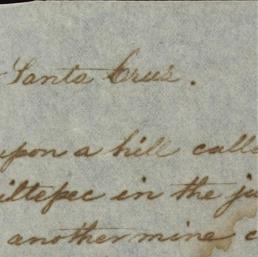 Santa Cruz.
upon a hill calle
iltepec in the ju
another mine c